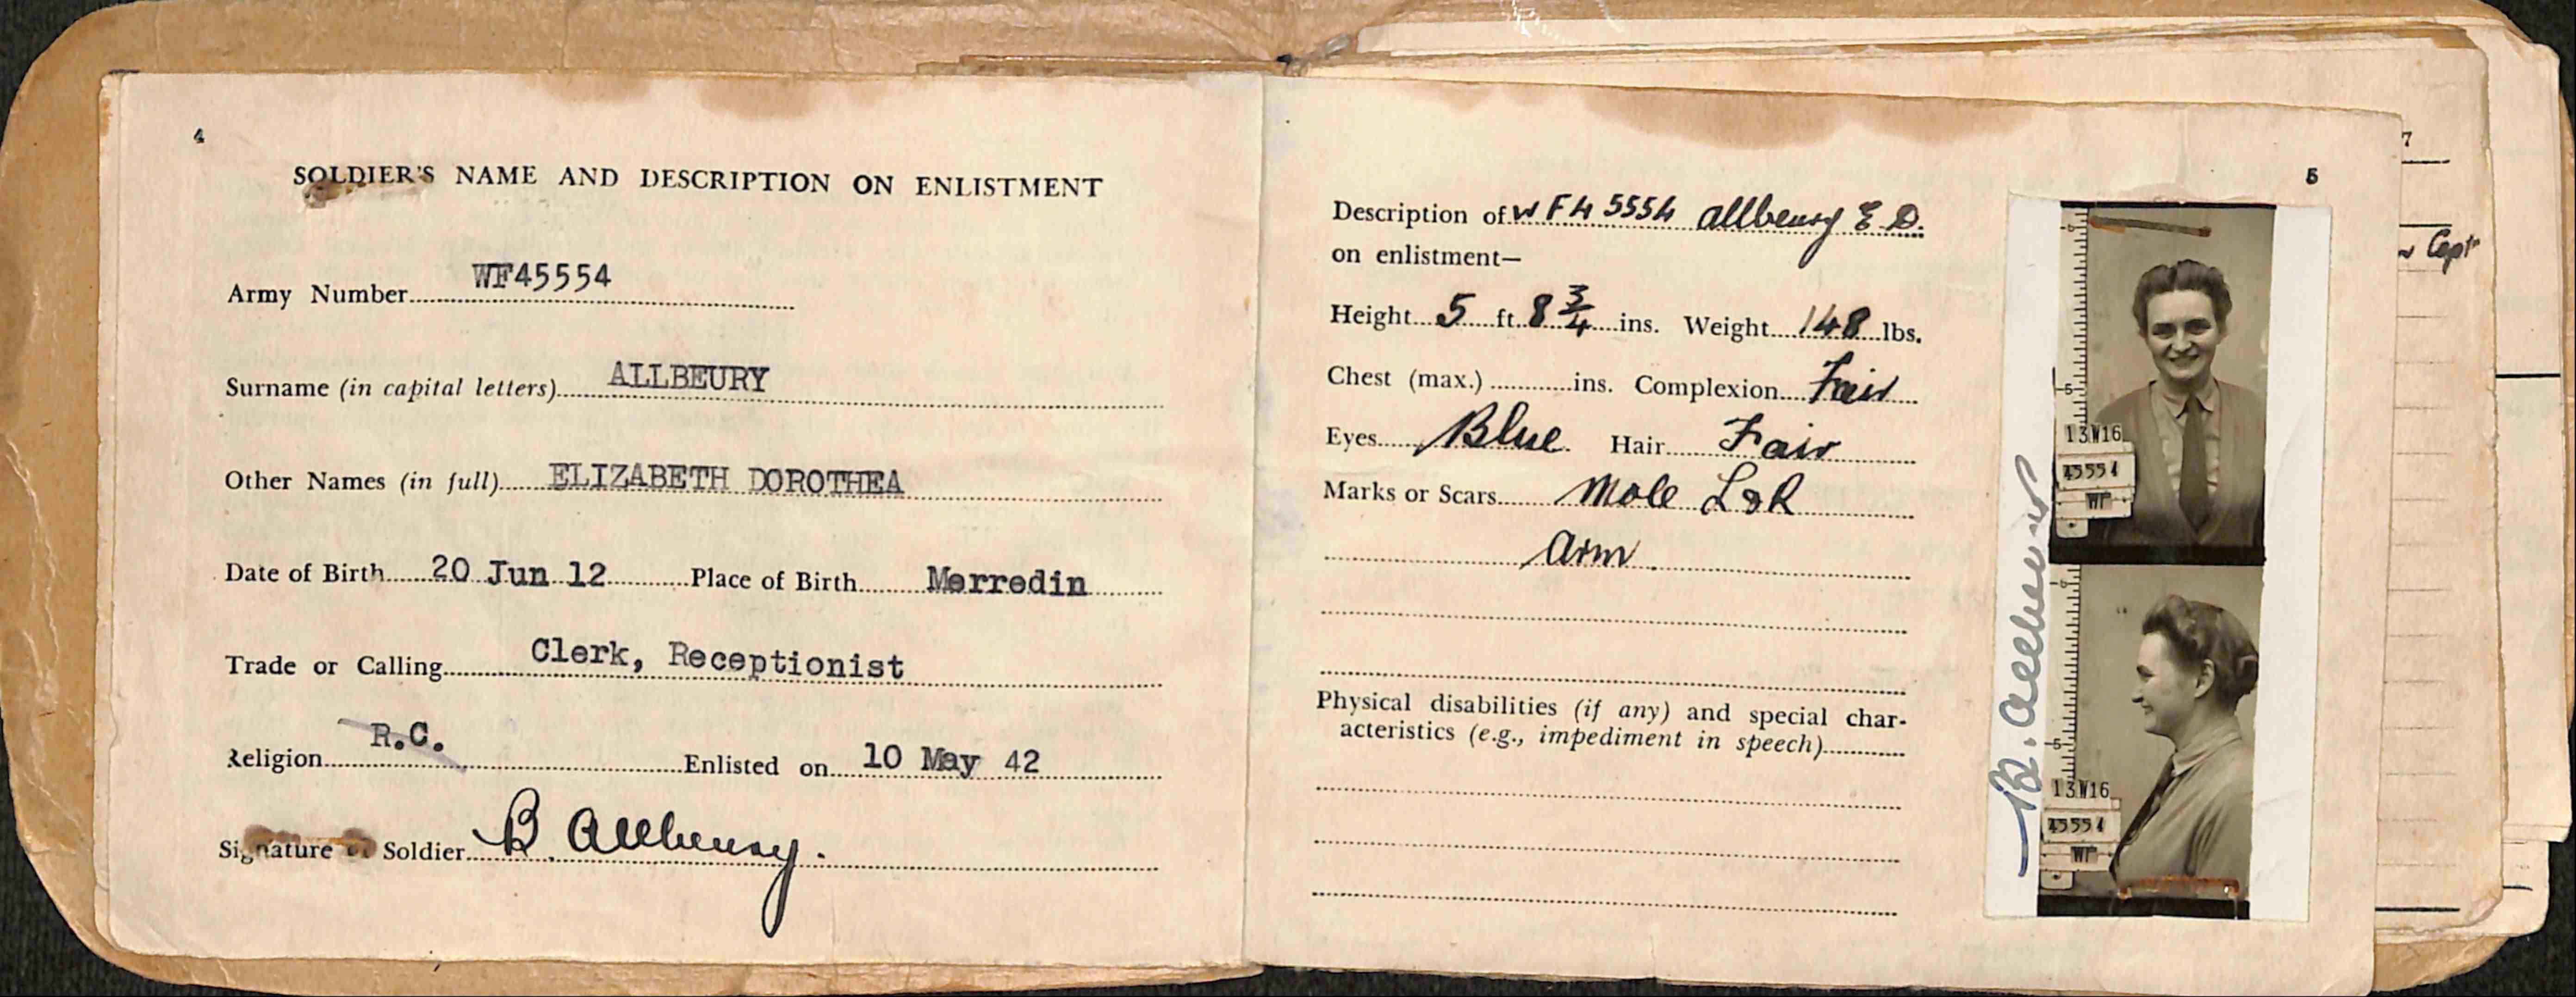 4
SOLDIER'S NAME AND DESCRIPTION ON ENLISTMENT
Army Number WF45554
Surname (in capital letters) ALLBEURY
Other Names (in full) ELIZABETH DOROTHEA
Date of Birth 20 Jun 12 Place of Birth Merredin
Trade or Calling Clerk, Receptionist
Religion R.C. Enlisted on 10 May 42
Signature of Soldier B. Allbeury.
5
Description of WF45554 Allbeury E.D.
on enlistment—
Height 5 ft 8 3/4 ins. Weight 148 lbs.
Chest (max.) ins. Complexion Fair
Eyes Blue Hair Fair
Marks or Scars Mole L & R
Arm
Physical disabilities (if any) and special char-
acteristics (e.g., impediment in speech)
B. Allbeury
6
5
13W16
45554
WF
6
5
13W16
45554
WF
7
Capt